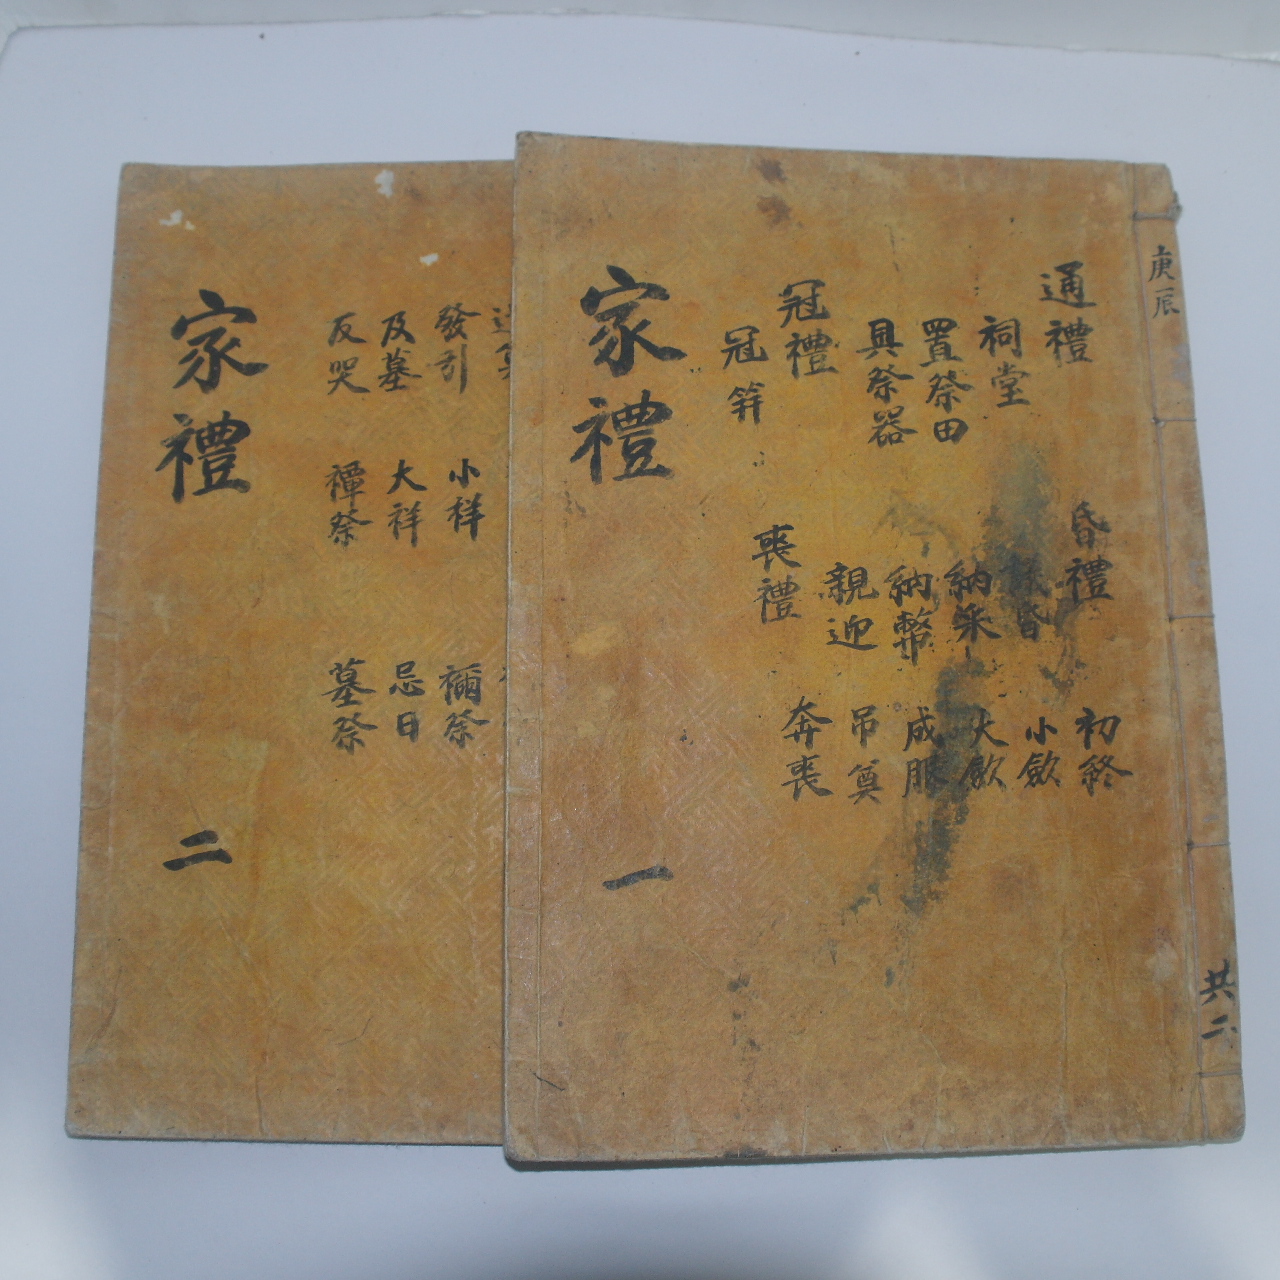 庚辰
共二
通禮
祠堂
置祭田
具祭器
冠禮
冠笄
昏禮
議昏
納采
納幣
親迎
喪禮
初終
小斂
大斂
成服
吊奠
奔喪
家禮
一
發引
及墓
反哭
小祥
大祥
禫祭
禰祭
忌日
墓祭
家禮
二